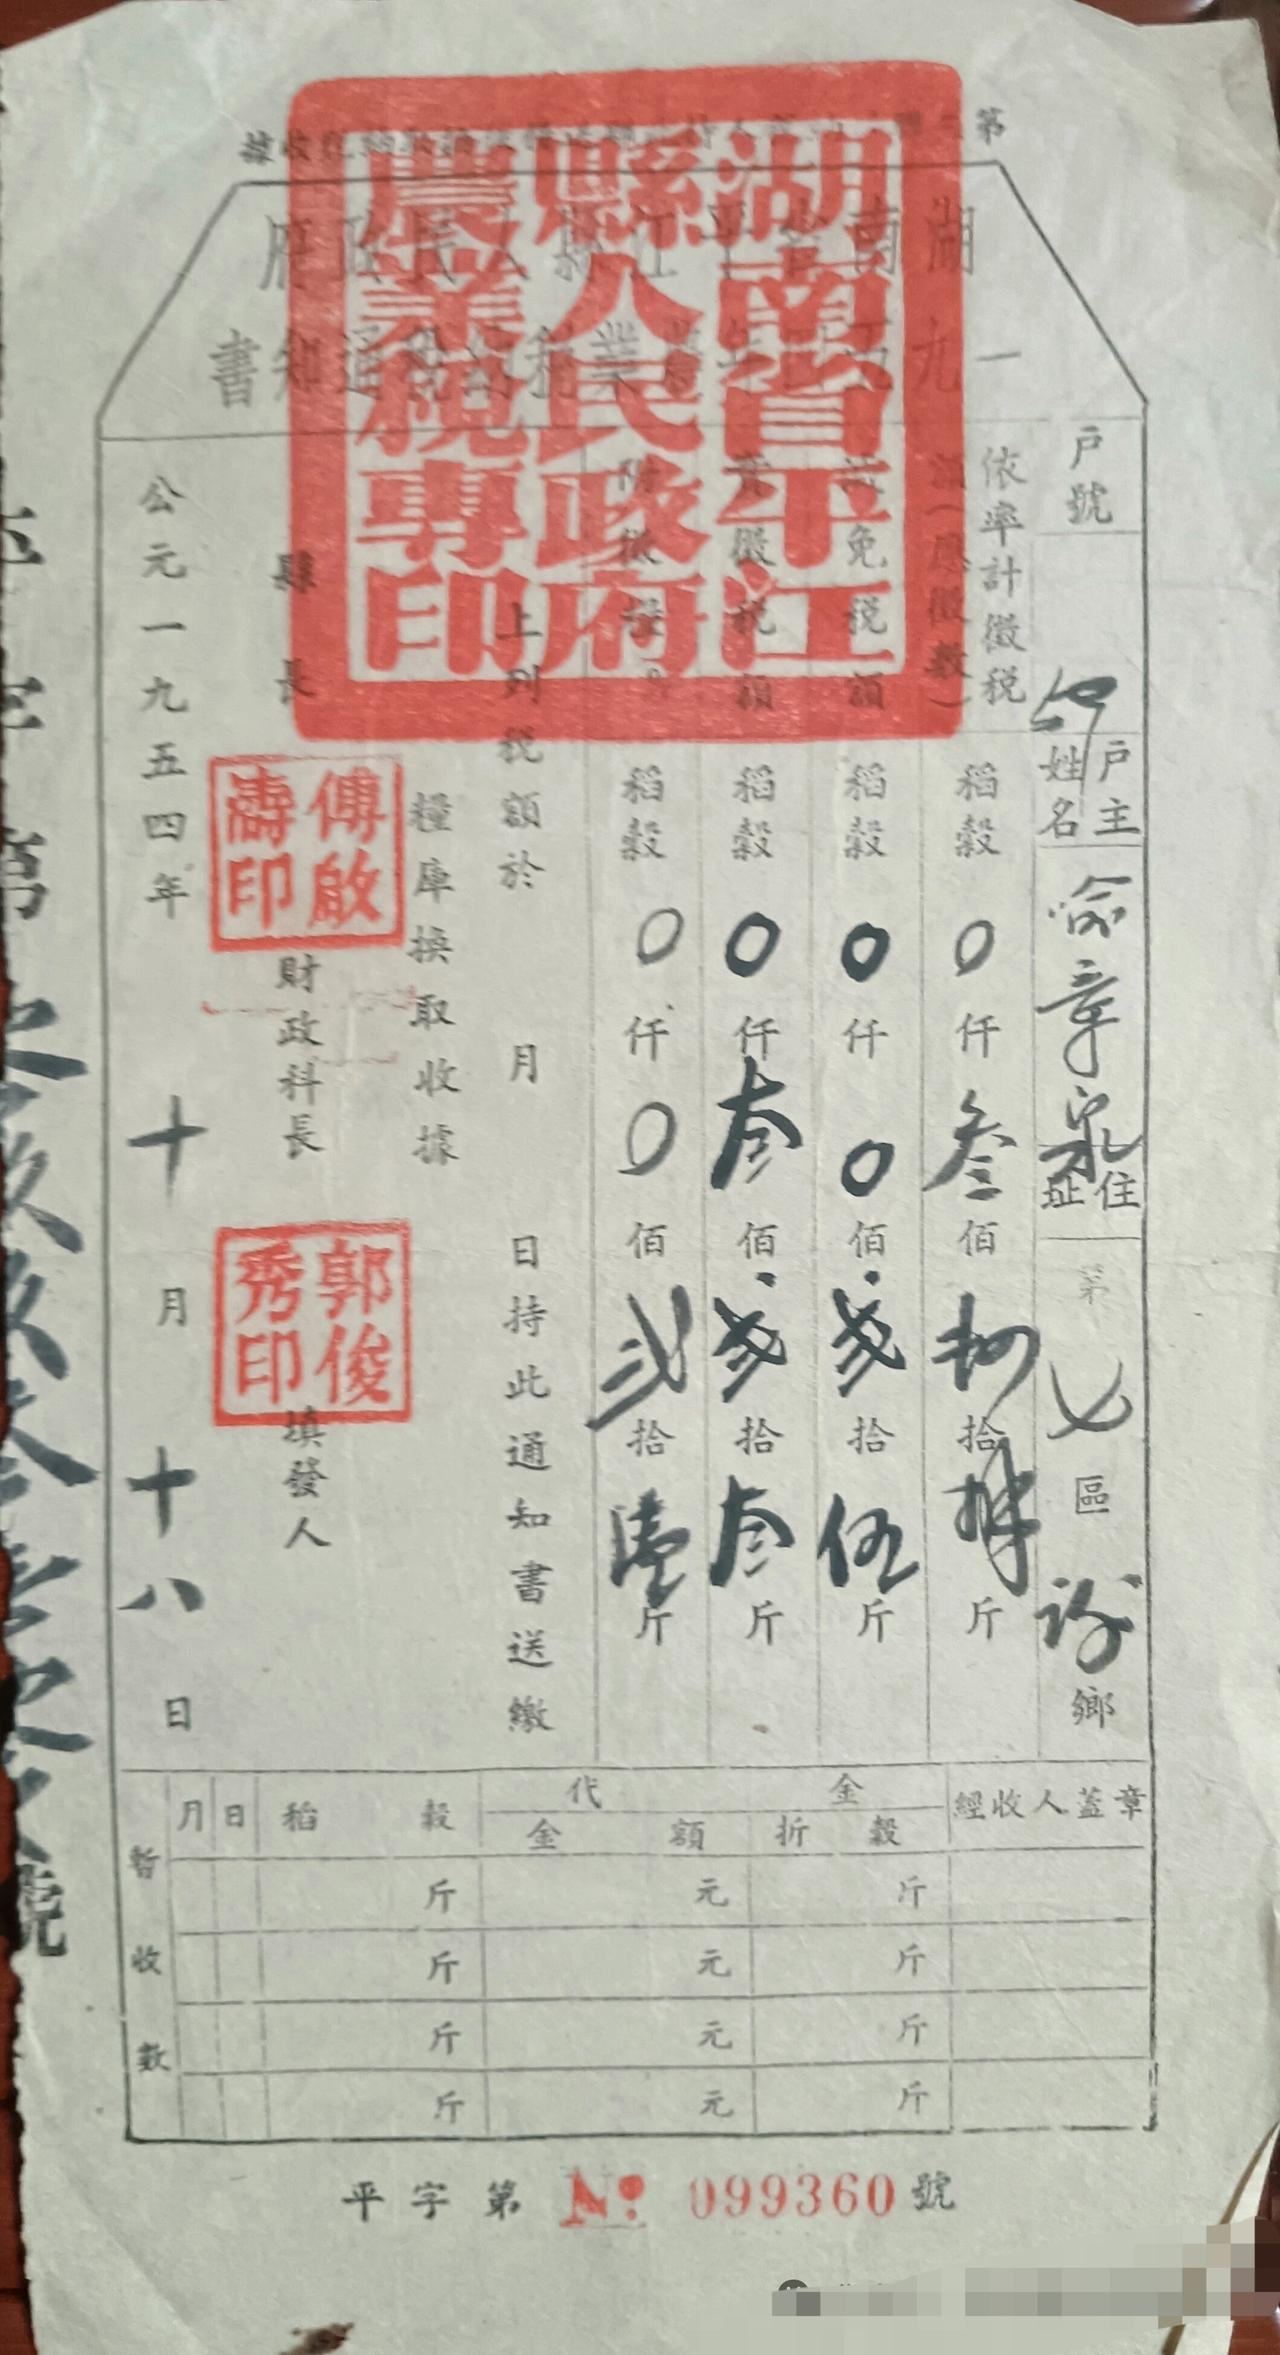 湖南省平江縣人民政府
一九五四年農業稅納稅通知書
湖南省平江
縣人民政府
農業稅專印
戶號
戶主姓名
喻章泉
住址
第七區 鄉
依率計徵稅額(應徵數)
稻穀0仟叁佰柒拾捌斤
免稅額
稻穀0仟0佰貳拾伍斤
徵稅額
稻穀0仟叁佰貳拾叁斤
附徵
稻穀0仟0佰貳拾壹斤
上列稅額於 月 日持此通知書送繳
糧庫換取收據
縣長
傅啟濤印
財政科長
郭俊秀印
填發人
公元一九五四年十月十八日
暫收數
月 日 稻穀 代金 經收人蓋章
金額 折穀
斤 元 斤
斤 元 斤
斤 元 斤
斤 元 斤
平字第 No. 099360 號